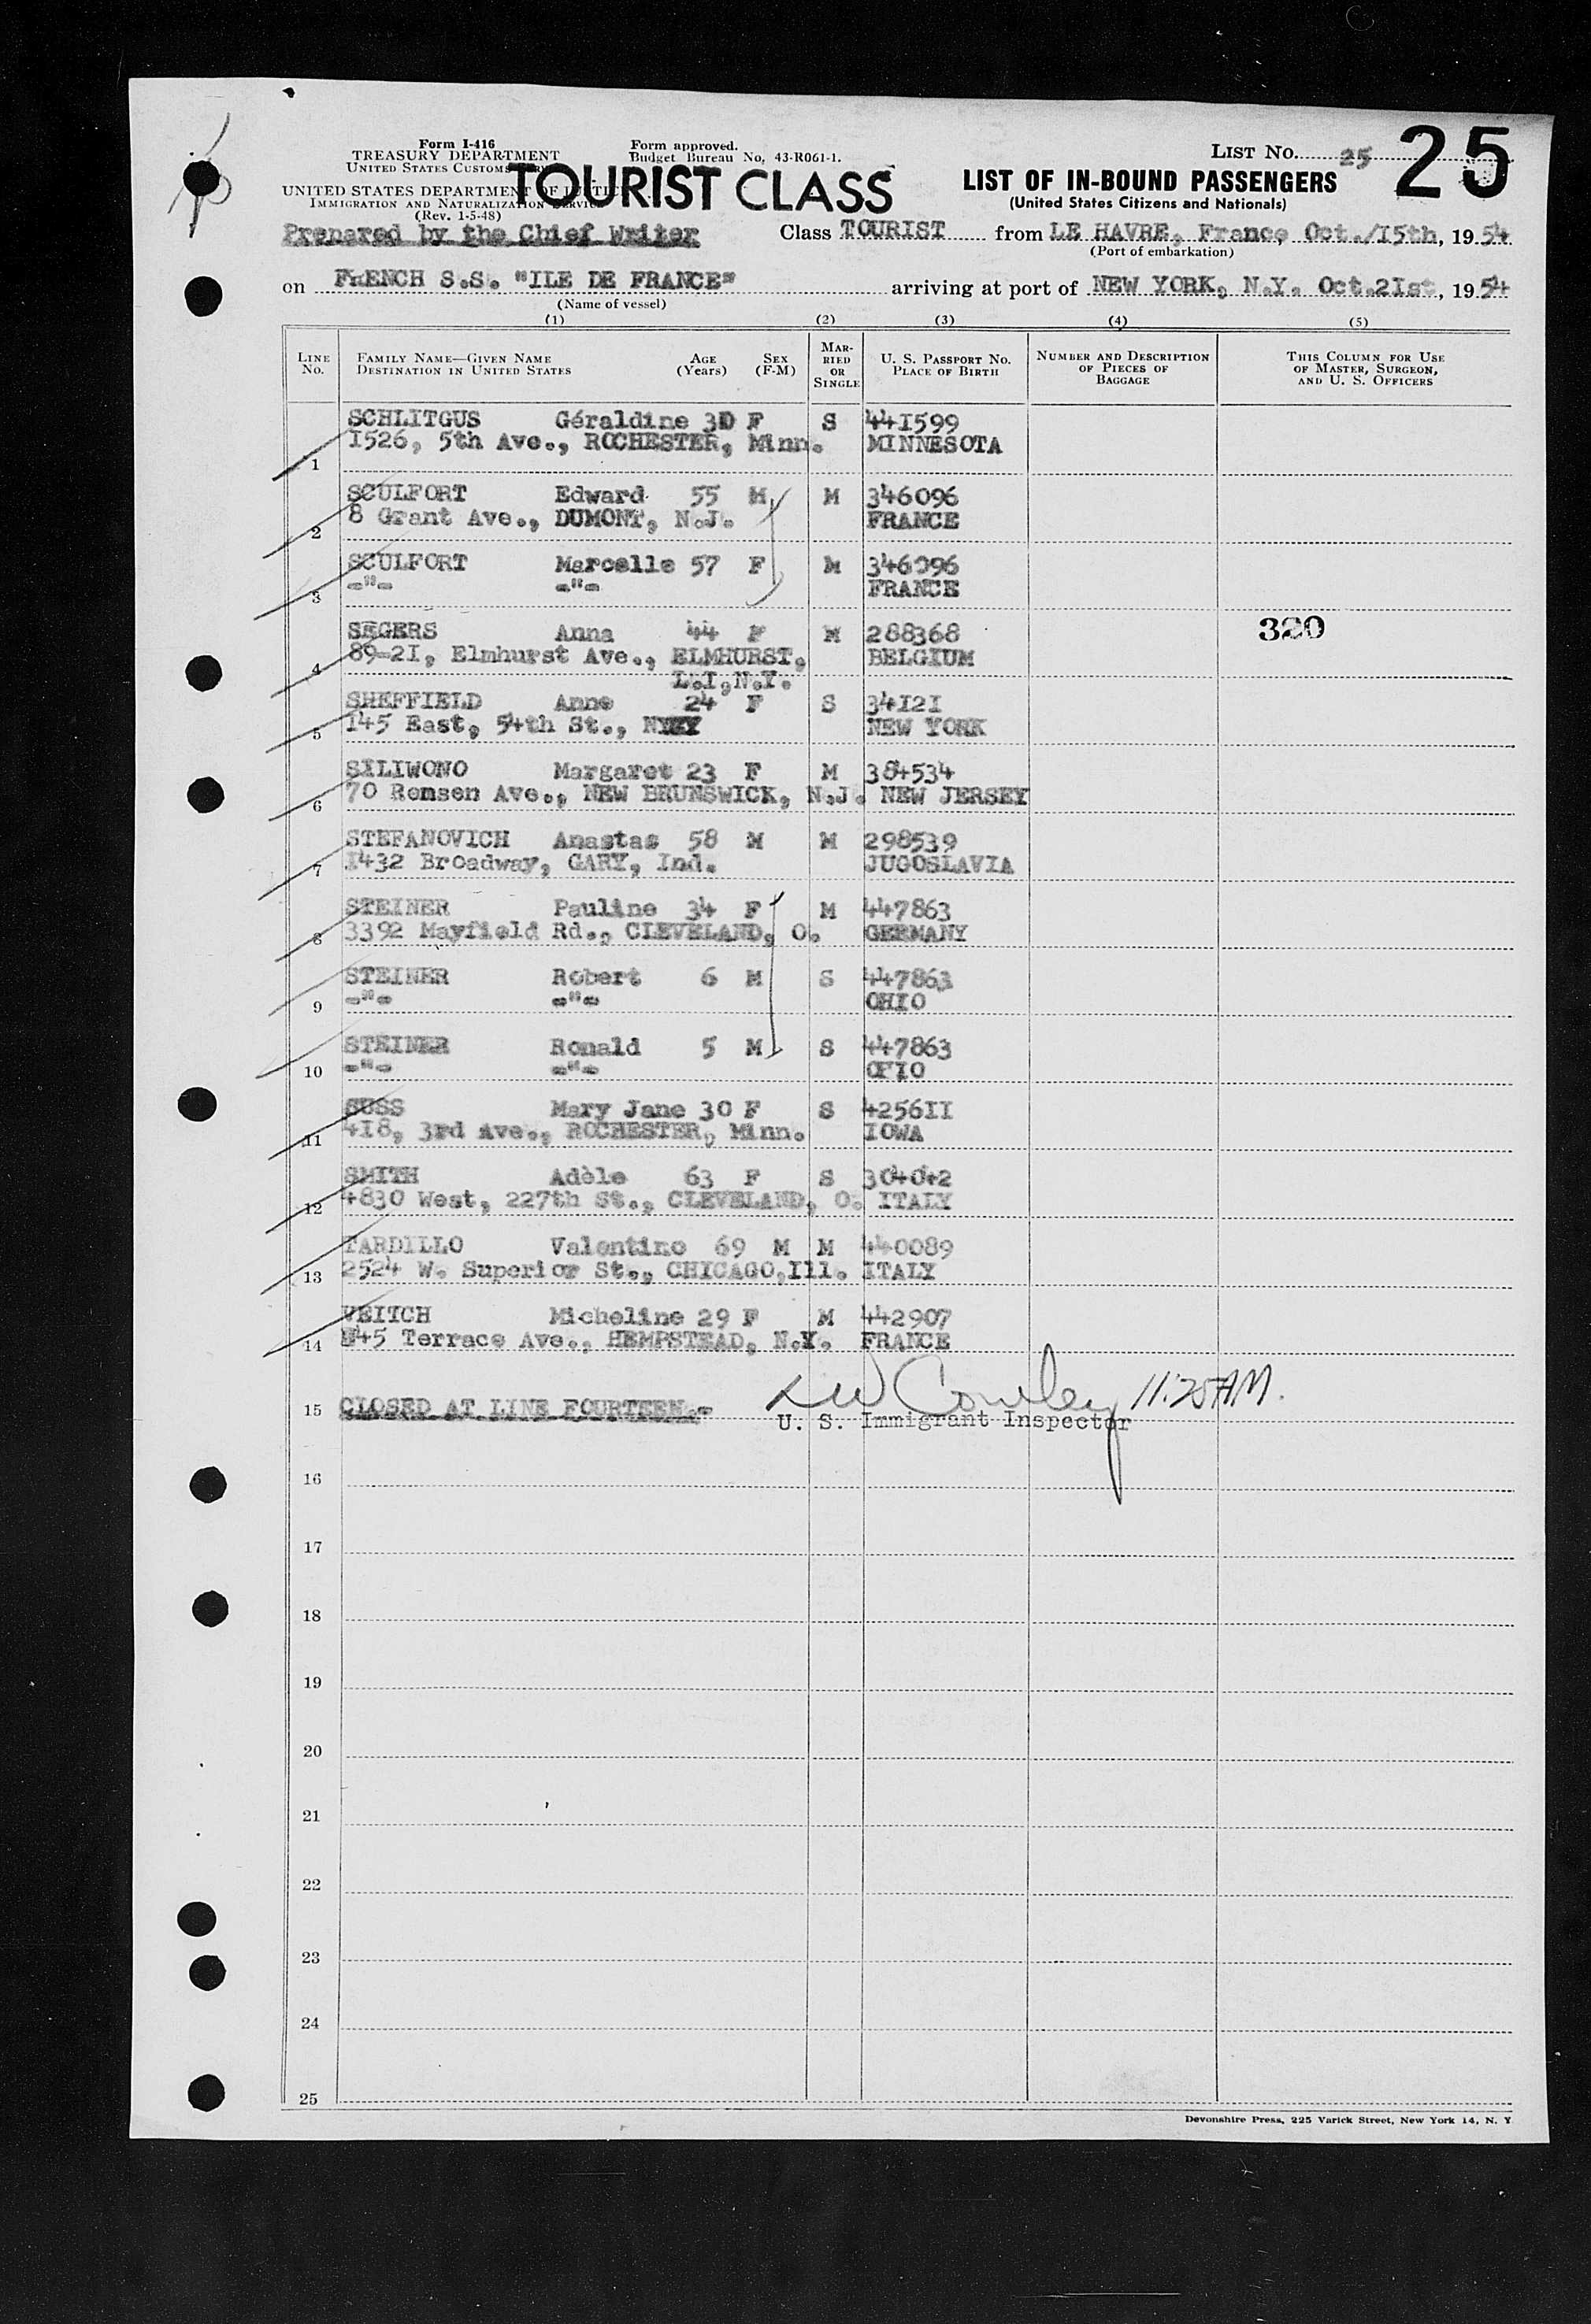 Form I-416
TREASURY DEPARTMENT
UNITED STATES CUSTOMS
Form approved.
Budget Bureau No. 43-R061-1.
LIST No. 25
25
UNITED STATES DEPARTMENT OF JUSTICE
IMMIGRATION AND NATURALIZATION SERVICE
(Rev. 1-5-48)
TOURIST CLASS
LIST OF IN-BOUND PASSENGERS
(United States Citizens and Nationals)
Prepared by the Chief Writer
Class TOURIST from LE HAVRE, France, Oct./15th, 1954
(Port of embarkation)
on FRENCH S.S. "ILE DE FRANCE" arriving at port of NEW YORK, N.Y. Oct.21st, 1954
(Name of vessel)
(1) (2) (3) (4) (5)
LINE No. FAMILY NAME—GIVEN NAME DESTINATION IN UNITED STATES AGE (Years) SEX (F-M) MARRIED OR SINGLE U. S. PASSPORT No. PLACE OF BIRTH NUMBER AND DESCRIPTION OF PIECES OF BAGGAGE THIS COLUMN FOR USE OF MASTER, SURGEON, AND U. S. OFFICERS
SCHLITGUS Géraldine 30 F S 441599
1 1526, 5th Ave., ROCHESTER, Minn. MINNESOTA
SCULFORT Edward 55 M M 346096
2 8 Grant Ave., DUMONT, N.J. FRANCE
SCULFORT Marcelle 57 F M 346096
3 -"- -"- FRANCE
SEGERS Anna 44 F M 288368 320
4 89-21, Elmhurst Ave., ELMHURST, BELGIUM
L.I,N.Y.
SHEFFIELD Anne 24 F S 34121
5 145 East, 54th St., NY NEW YORK
SILIWONO Margaret 23 F M 384534
6 70 Remsen Ave., NEW BRUNSWICK, N.J. NEW JERSEY
STEFANOVICH Anastas 58 M M 298539
7 1432 Broadway, GARY, Ind. JUGOSLAVIA
STEINER Pauline 34 F M 447863
8 3392 Mayfield Rd., CLEVELAND, O. GERMANY
STEINER Robert 6 M S 447863
9 -"- -"- OHIO
STEINER Ronald 5 M S 447863
10 -"- -"- OHIO
SUSS Mary Jane 30 F S 425611
11 418, 3rd Ave., ROCHESTER, Minn. IOWA
SMITH Adèle 63 F S 304042
12 4830 West, 227th St., CLEVELAND, O. ITALY
TARDILLO Valentino 69 M M 440089
13 2524 W. Superior St., CHICAGO,Ill. ITALY
VEITCH Micheline 29 F M 442907
14 45 Terrace Ave., HEMPSTEAD, N.Y. FRANCE
15 CLOSED AT LINE FOURTEEN.- W Cowley 11:25 AM.
U. S. Immigrant Inspector
16
17
18
19
20
21
22
23
24
25
Devonshire Press, 225 Varick Street, New York 14, N. Y